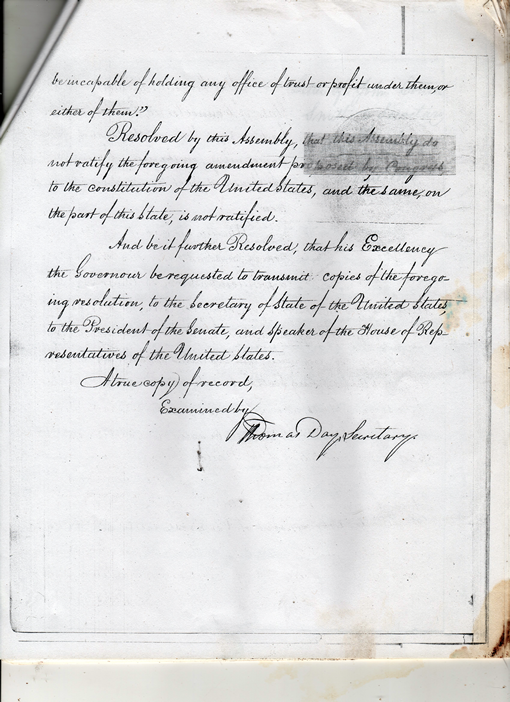 be incapable of holding any office of trust or profit under them, or
either of them."
Resolved by this Assembly, that this Assembly do
not ratify the foregoing amendment proposed by Congress
to the constitution of the United States, and the same, on
the part of this State, is not ratified.
And be it further Resolved, that his Excellency
the Governour be requested to transmit copies of the forego-
ing resolution, to the Secretary of State of the United States,
to the President of the Senate, and Speaker of the House of Rep-
resentatives of the United States.
A true copy of record,
Examined by
Thomas Day, Secretary.